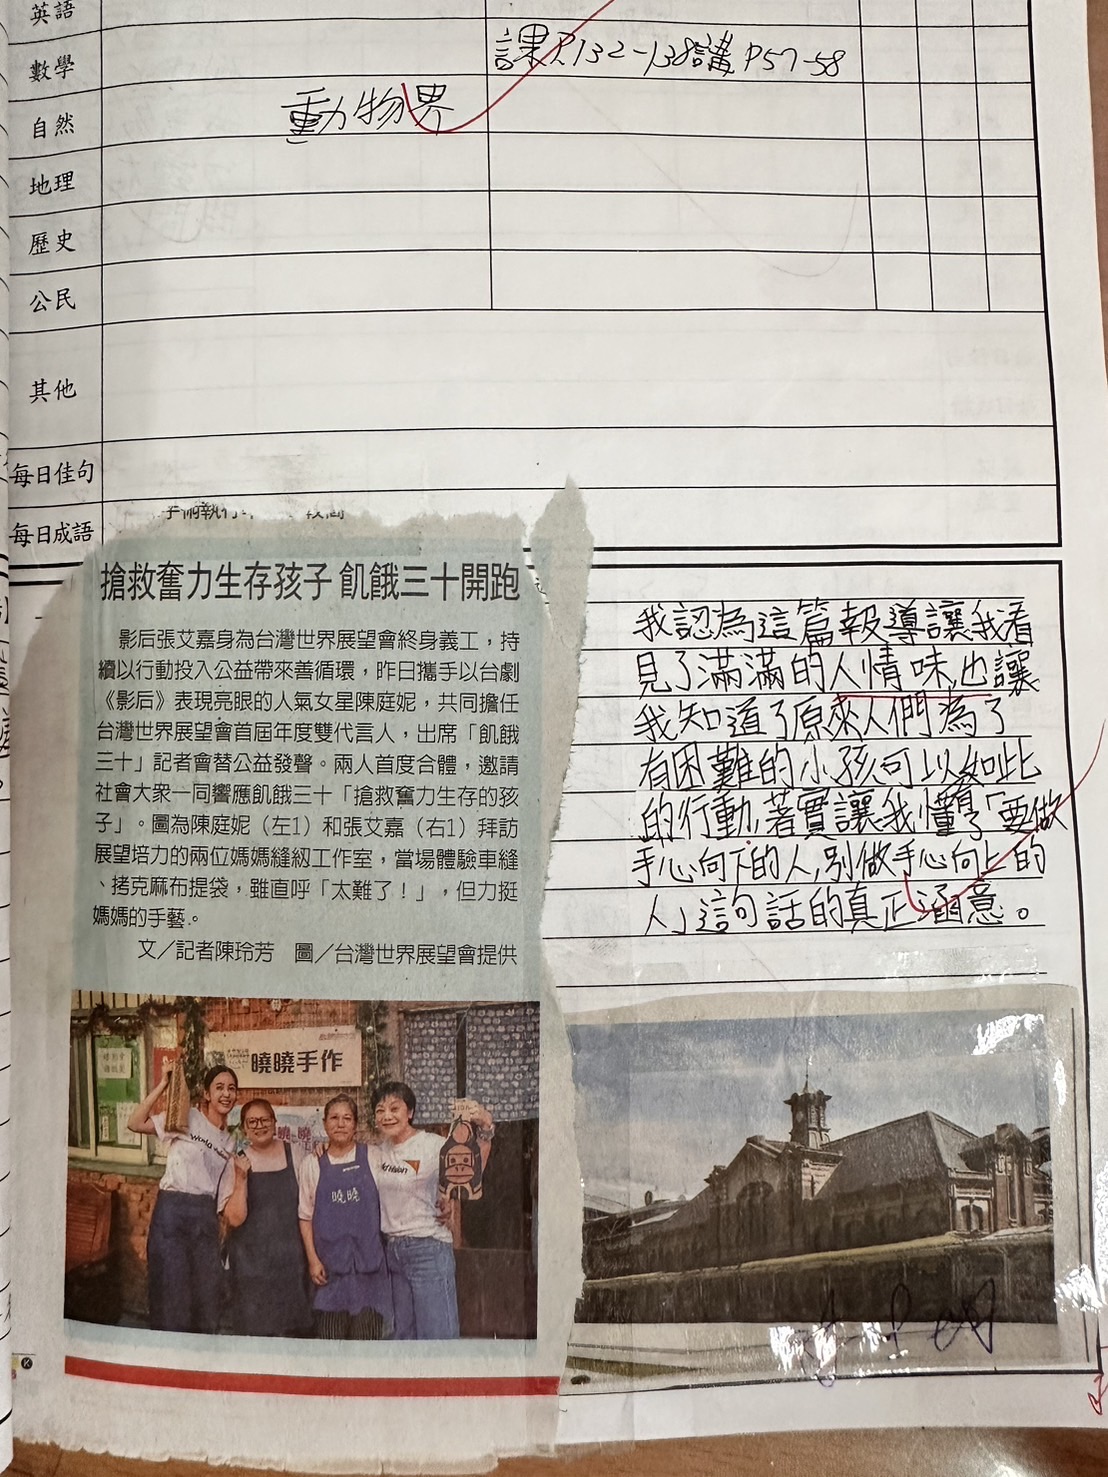 英語
數學
課P.132-138講P57-58
自然
動物界
地理
歷史
公民
其他
每日佳句
每日成語
搶救奮力生存孩子 飢餓三十開跑
影后張艾嘉身為台灣世界展望會終身義工，持
續以行動投入公益帶來善循環，昨日攜手以台劇
《影后》表現亮眼的人氣女星陳庭妮，共同擔任
台灣世界展望會首屆年度雙代言人，出席「飢餓
三十」記者會替公益發聲。兩人首度合體，邀請
社會大眾一同響應飢餓三十「搶救奮力生存的孩
子」。圖為陳庭妮（左1）和張艾嘉（右1）拜訪
展望培力的兩位媽媽縫紉工作室，當場體驗車縫
、拷克麻布提袋，雖直呼「太難了！」，但力挺
媽媽的手藝。
文／記者陳玲芳　圖／台灣世界展望會提供
我認為這篇報導讓我看
見了滿滿的人情味，也讓
我知道了原來人們為了
有困難的小孩可以如此
的行動，著實讓我懂了「要做
手心向下的人，別做手心向上的
人」這句話的真正涵意。
曉曉手作
曉曉